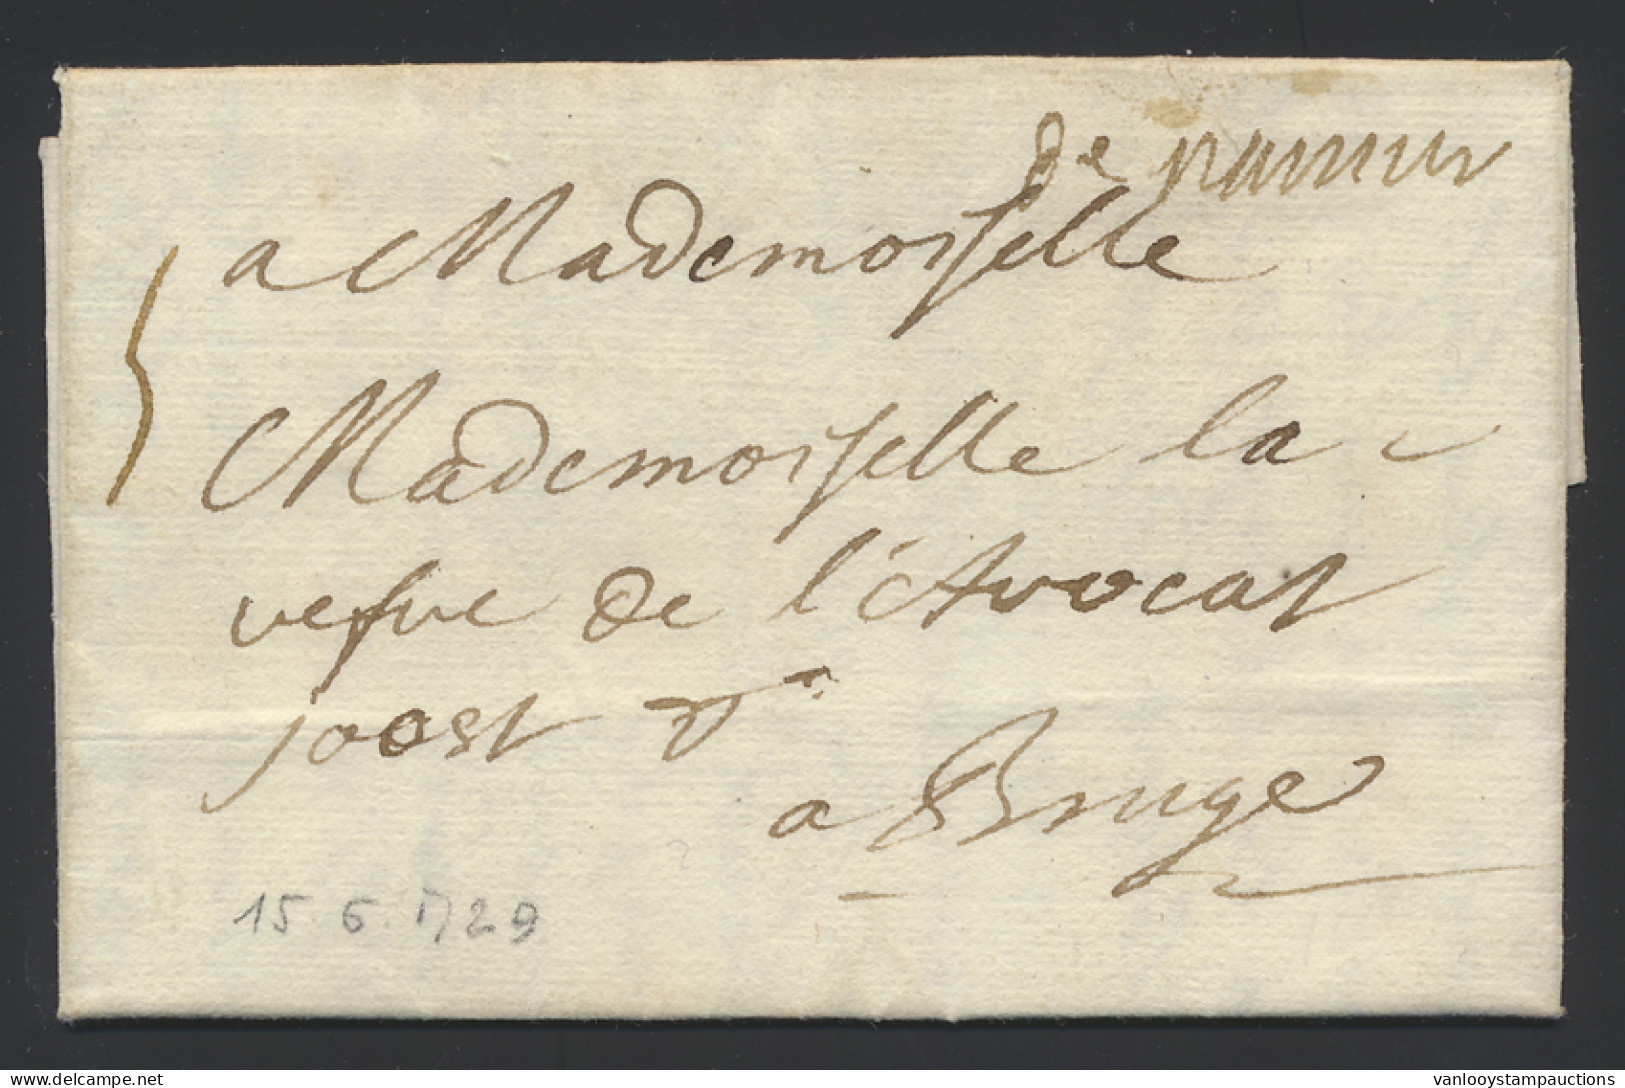 de namur
a Mademoiselle
Mademoiselle la
vefve de l'Avocat
joost
a Bruge
15. 6. 1729
vanlooystampauctions